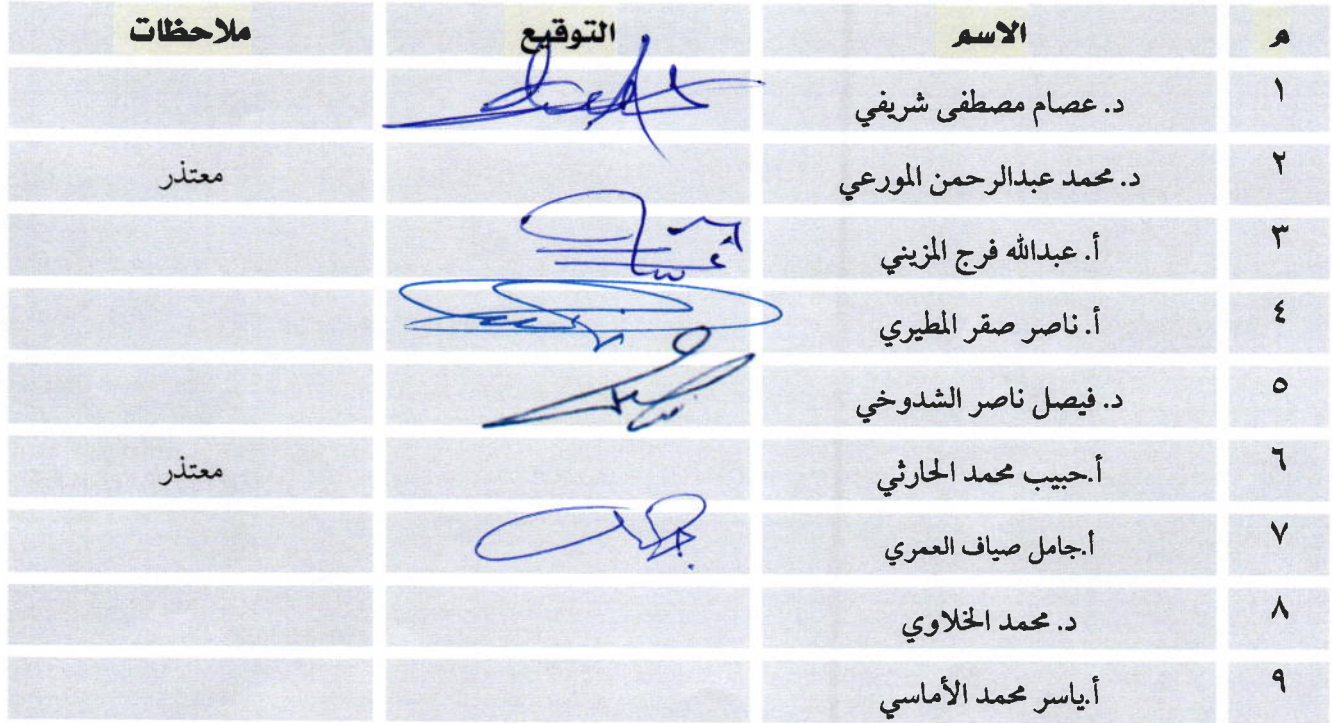 م الاسم التوقيع ملاحظات
١ د. عصام مصطفى شريفي
٢ د. محمد عبدالرحمن المورعي معتذر
٣ أ. عبدالله فرج المزيني
٤ أ. ناصر صقر المطيري
٥ د. فيصل ناصر الشدوخي
٦ أ.حبيب محمد الحارثي معتذر
٧ أ.جامل صياف العمري
٨ د. محمد الخلاوي
٩ أ.ياسر محمد الأماسي